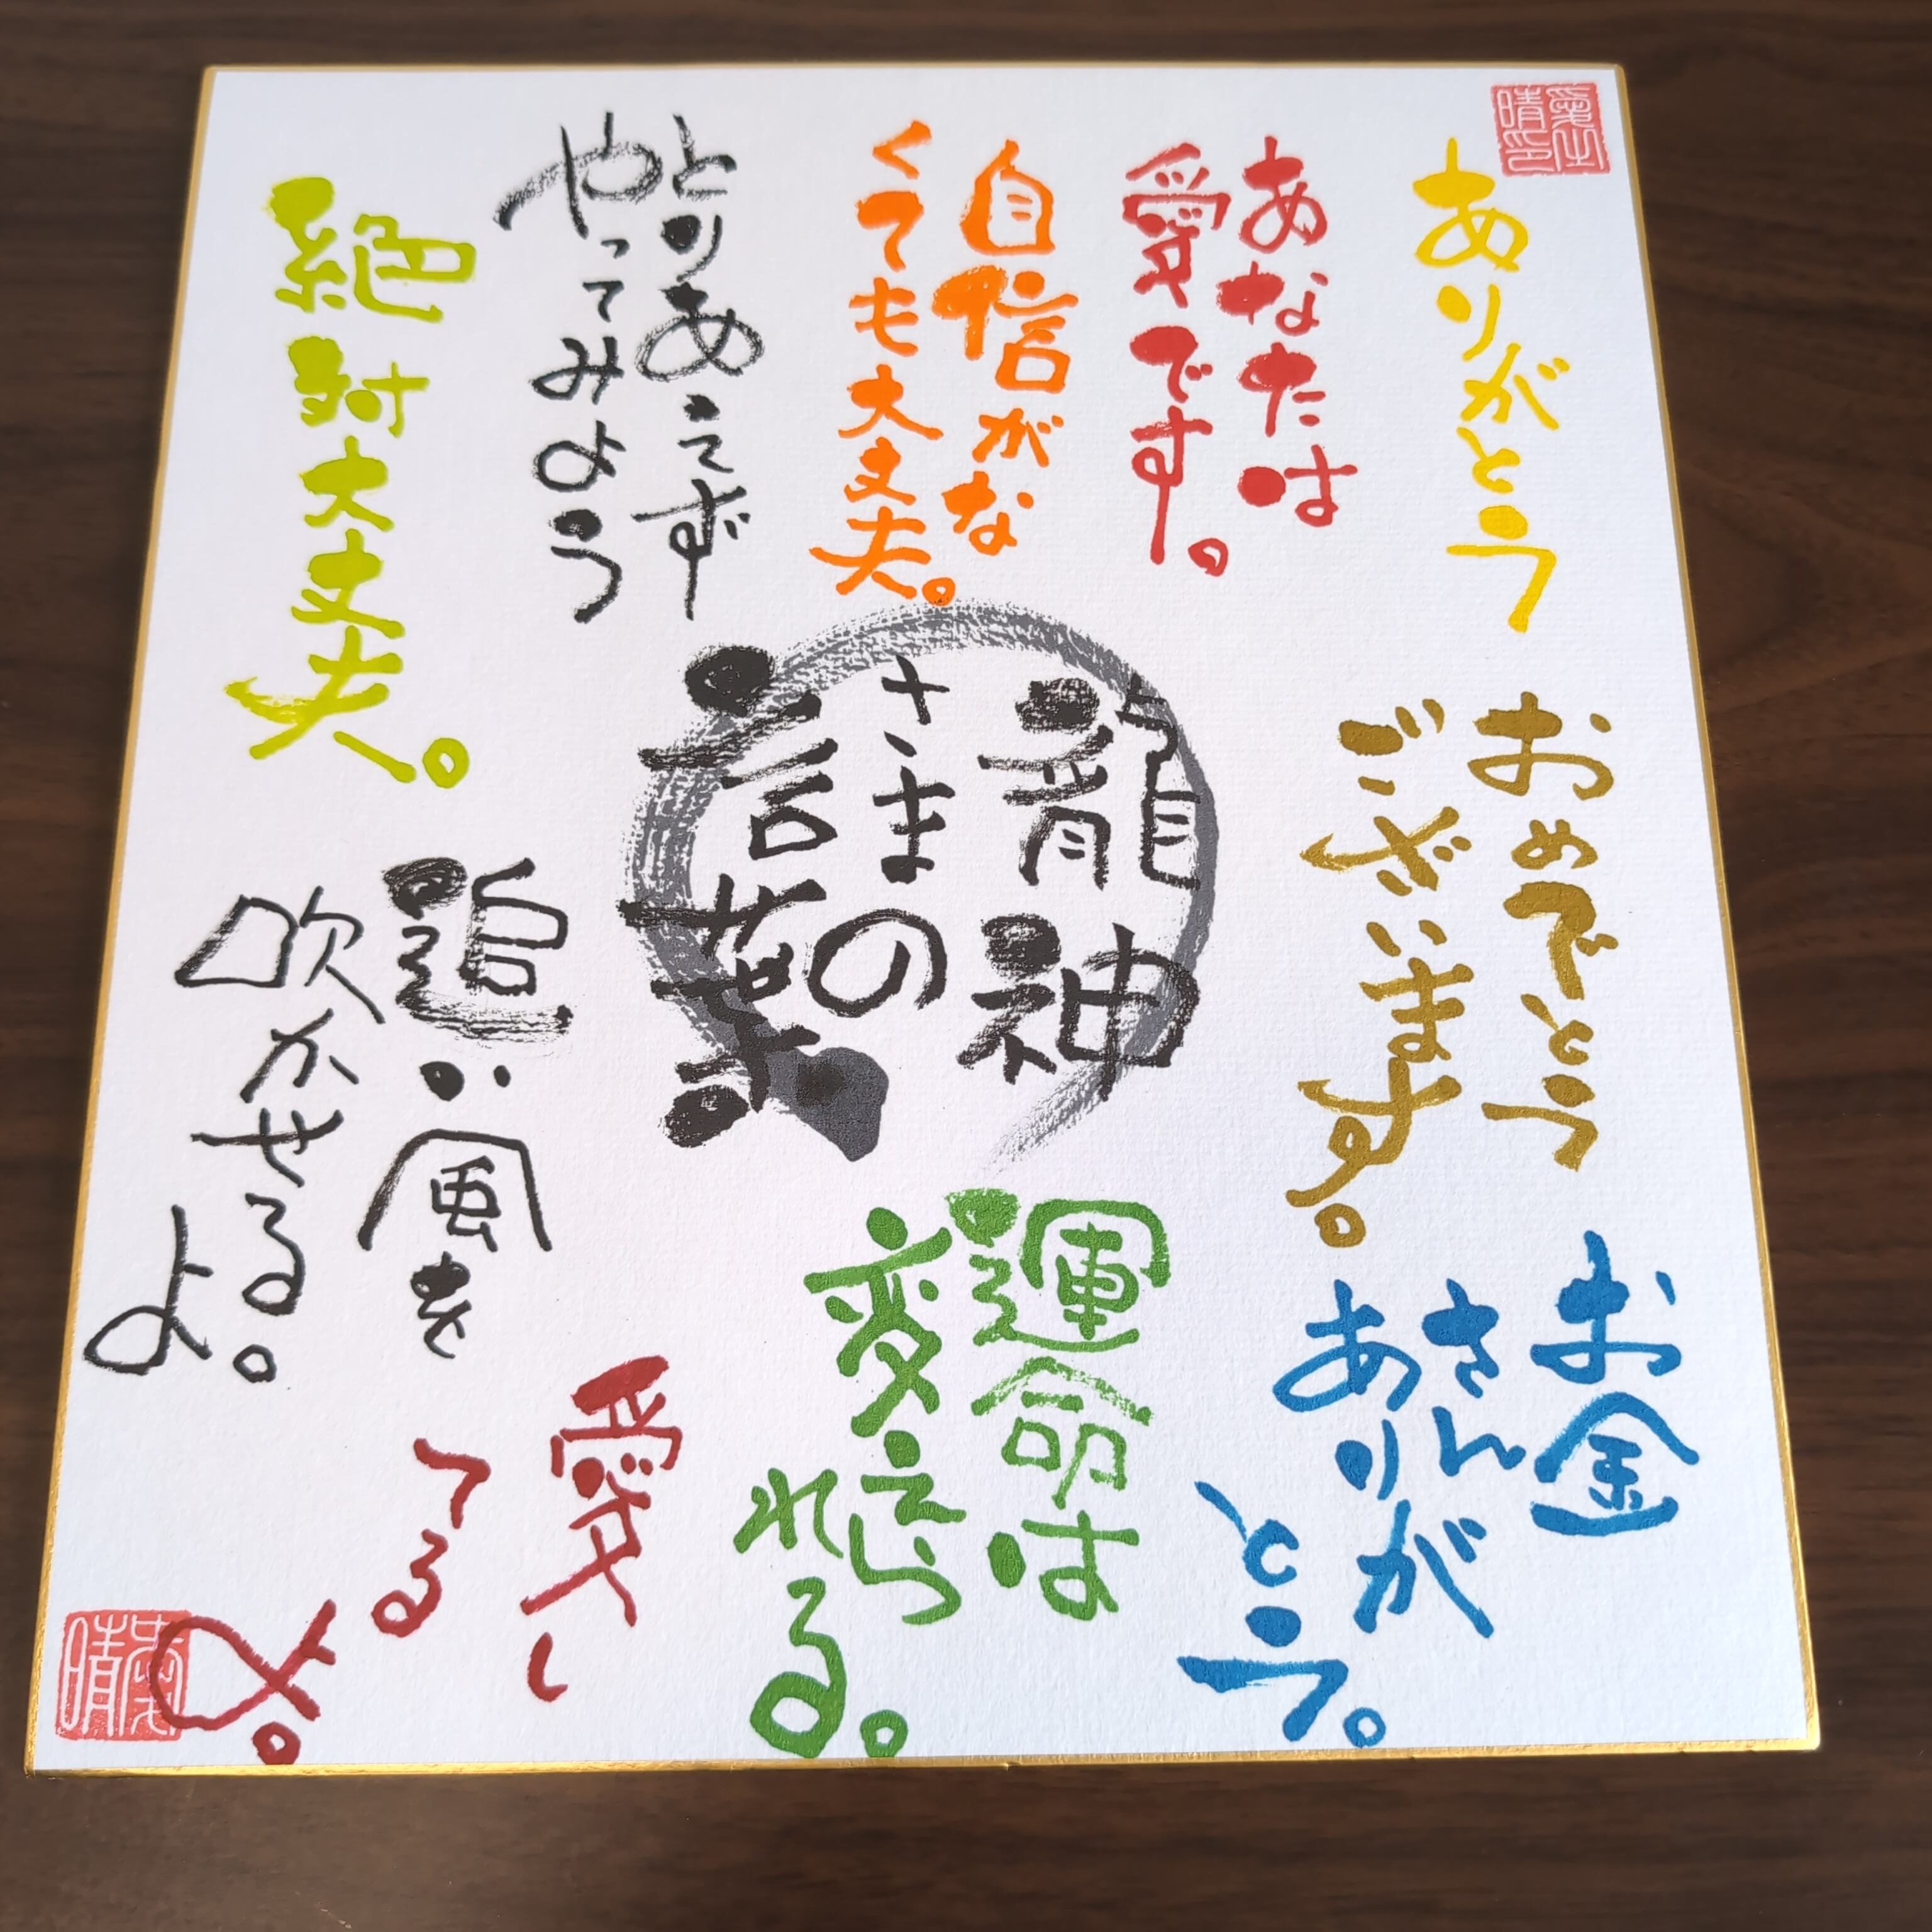 ありがとう
あなたは
愛です。
自信がな
くても大丈夫。
とりあえず
やってみよう
絶対大丈夫。
龍神
さまの
言葉
おめでとう
ございます。
お金
さん
ありが
とう。
運命は
変えら
れる。
追い風を
吹かせる
よ。
愛し
てる
よ。